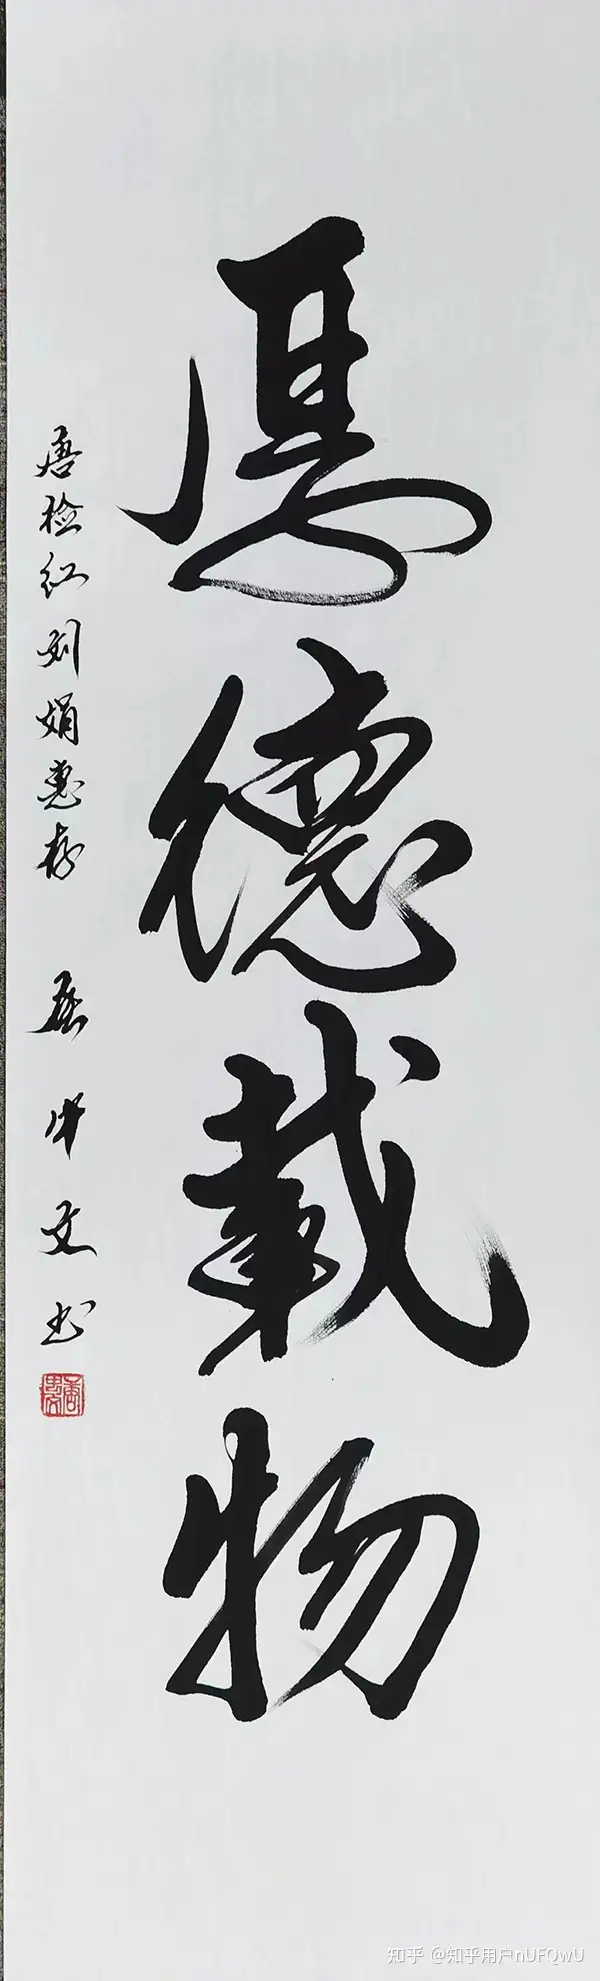 厚德載物
唐检红刘娟惠存 唐中文书
知乎 @知乎用户nUFQwU